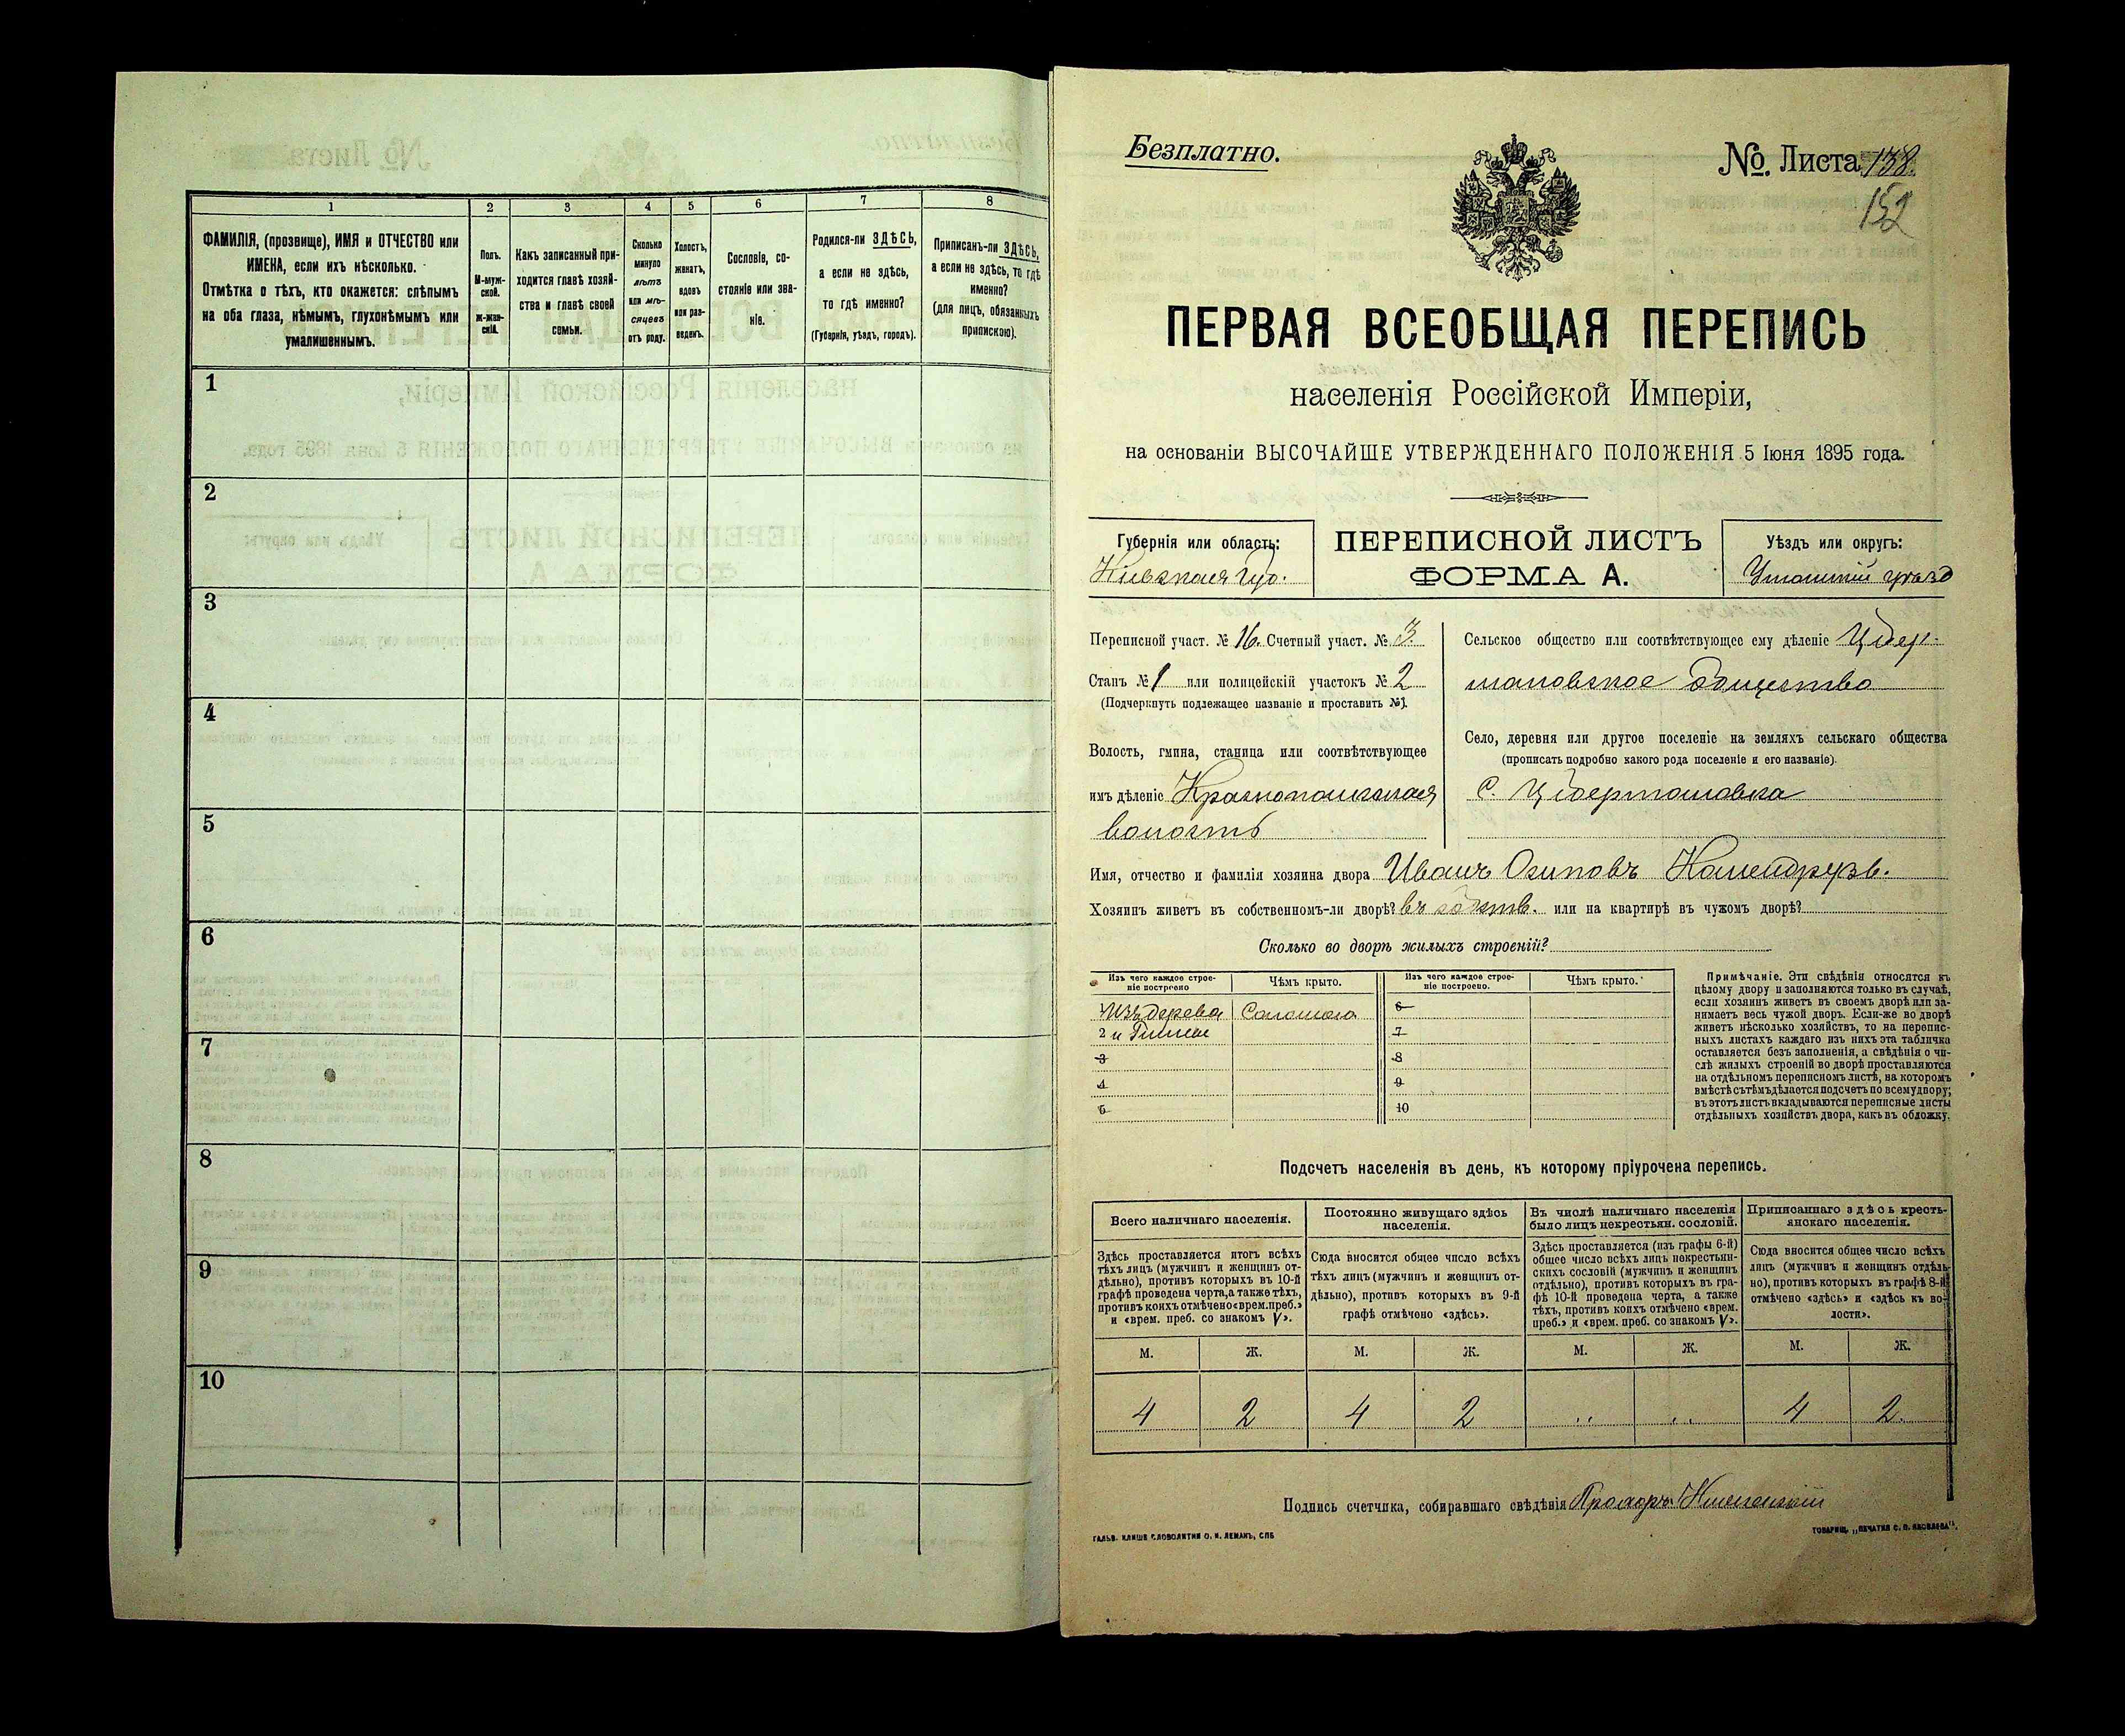 1 2 3 4 5 6 7 8
ФАМИЛІЯ, (прозвище), ИМЯ и ОТЧЕСТВО или
ИМЕНА, если ихъ нѣсколько.
Отмѣтка о тѣхъ, кто окажется: слѣпымъ
на оба глаза, нѣмымъ, глухонѣмымъ или
умалишеннымъ.
Полъ.
М-муж-
ской.
Ж-жен-
скій.
Какъ записанный при-
ходится главѣ хозяй-
ства и главѣ своей
семьи.
Сколько
минуло
лѣтъ
или мѣ-
сяцевъ
отъ роду.
Холостъ,
женатъ,
вдовъ
или раз-
веденъ.
Сословіе, со-
стояніе или зва-
ніе.
Родился-ли ЗДѢСЬ,
а если не здѣсь,
то гдѣ именно?
(Губернія, уѣздъ, городъ).
Приписанъ-ли ЗДѢСЬ,
а если не здѣсь, то гдѣ
именно?
(для лицъ, обязанныхъ
припискою).
1
2
3
4
5
6
7
8
9
10
Безплатно.
№. Листа 138.
152
ПЕРВАЯ ВСЕОБЩАЯ ПЕРЕПИСЬ
населенія Россійской Имперіи,
на основаніи ВЫСОЧАЙШЕ УТВЕРЖДЕННАГО ПОЛОЖЕНІЯ 5 Іюня 1895 года.
Губернія или область:
Кіевская Губ.
ПЕРЕПИСНОЙ ЛИСТЪ
ФОРМА А.
Уѣздъ или округъ:
Уманскій уѣзд
Переписной участ. № 16. Счетный участ. № 3.
Станъ № 1 или полицейскій участокъ № 2
(Подчеркнуть подлежащее названіе и проставить №).
Волость, гмина, станица или соотвѣтствующее
имъ дѣленіе Краснопольская
волость
Сельское общество или соотвѣтствующее ему дѣленіе Цибер-
мановское Общество
Село, деревня или другое поселеніе на земляхъ сельскаго общества
(прописать подробно какого рода поселеніе и его названіе).
С. Цибермановка
Имя, отчество и фамилія хозяина двора Иванъ Осиповъ
Хозяинъ живетъ въ собственномъ-ли дворѣ? въ собств. или на квартирѣ въ чужомъ дворѣ?
Сколько во дворѣ жилыхъ строеній?
Изъ чего каждое строе-
ніе построено
Чѣмъ крыто.
Изъ чего каждое строе-
ніе построено.
Чѣмъ крыто.
Изъ дерева Соломою 6
2 и Глины 7
3 8
4 9
5 10
Примѣчаніе. Эти свѣдѣнія относятся къ
цѣлому двору и заполняются только въ случаѣ,
если хозяинъ живетъ въ своемъ дворѣ или за-
нимаетъ весь чужой дворъ. Если-же во дворѣ
живетъ нѣсколько хозяйствъ, то на перепис-
ныхъ листахъ каждаго изъ нихъ эта табличка
оставляется безъ заполненія, а свѣдѣнія о чи-
слѣ жилыхъ строеній во дворѣ проставляются
на отдѣльномъ переписномъ листѣ, на которомъ
вмѣстѣ съ тѣмъ дѣлается подсчетъ по всему двору;
въ этотъ листъ вкладываются переписные листы
отдѣльныхъ хозяйствъ двора, какъ въ обложку.
Подсчетъ населенія въ день, къ которому пріурочена перепись.
Всего наличнаго населенія.
Здѣсь проставляется итогъ всѣхъ
тѣхъ лицъ (мужчинъ и женщинъ от-
дѣльно), противъ которыхъ въ 10-й
графѣ проведена черта, а также тѣхъ,
противъ коихъ отмѣчено «врем. преб.»
и «врем. преб. со знакомъ V».
Постоянно живущаго здѣсь
населенія.
Сюда вносится общее число всѣхъ
тѣхъ лицъ (мужчинъ и женщинъ от-
дѣльно), противъ которыхъ въ 9-й
графѣ отмѣчено «здѣсь».
Въ числѣ наличнаго населенія
было лицъ некрестьян. сословій.
Здѣсь проставляется (изъ графы 6-й)
общее число всѣхъ лицъ некрестьян-
скихъ сословій (мужчинъ и женщинъ
отдѣльно), противъ которыхъ въ гра-
фѣ 10-й проведена черта, а также
тѣхъ, противъ коихъ отмѣчено «врем.
преб.» и «врем. преб. со знакомъ V».
Приписаннаго здѣсь кресть-
янскаго населенія.
Сюда вносится общее число всѣхъ
лицъ (мужчинъ и женщинъ отдѣль-
но), противъ которыхъ въ графѣ 8-й
отмѣчено «здѣсь» и «здѣсь къ во-
лости».
М. Ж. М. Ж. М. Ж. М. Ж.
4 2 4 2 .. .. 4 2.
Подпись счетчика, собиравшаго свѣдѣнія Прохоръ
ГАЛЬВ. КЛИШЕ СЛОВОЛИТНИ О. И. ЛЕМАНЪ, СПБ
ТОВАРИЩ. „ПЕЧАТНЯ С. П. ЯКОВЛЕВА“.